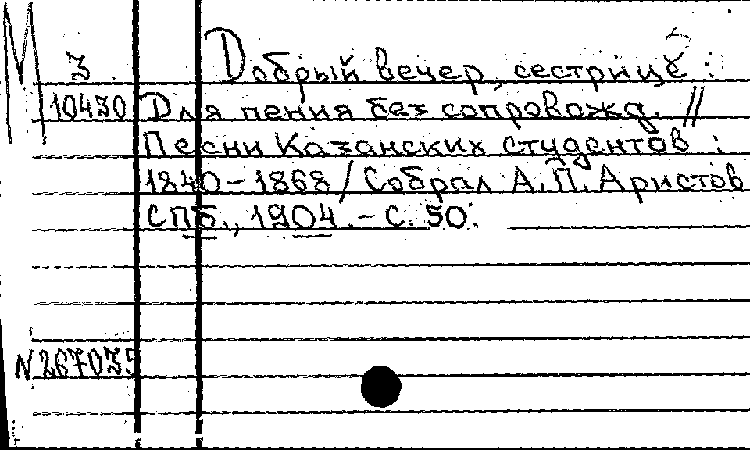 М З Добрый вечер, сестрице :
10430 Для пения без сопровожд. //
Песни Казанских студентов :
1840-1868 / Собрал А.П. Аристов
СПб., 1904. - С. 50.
N 267035